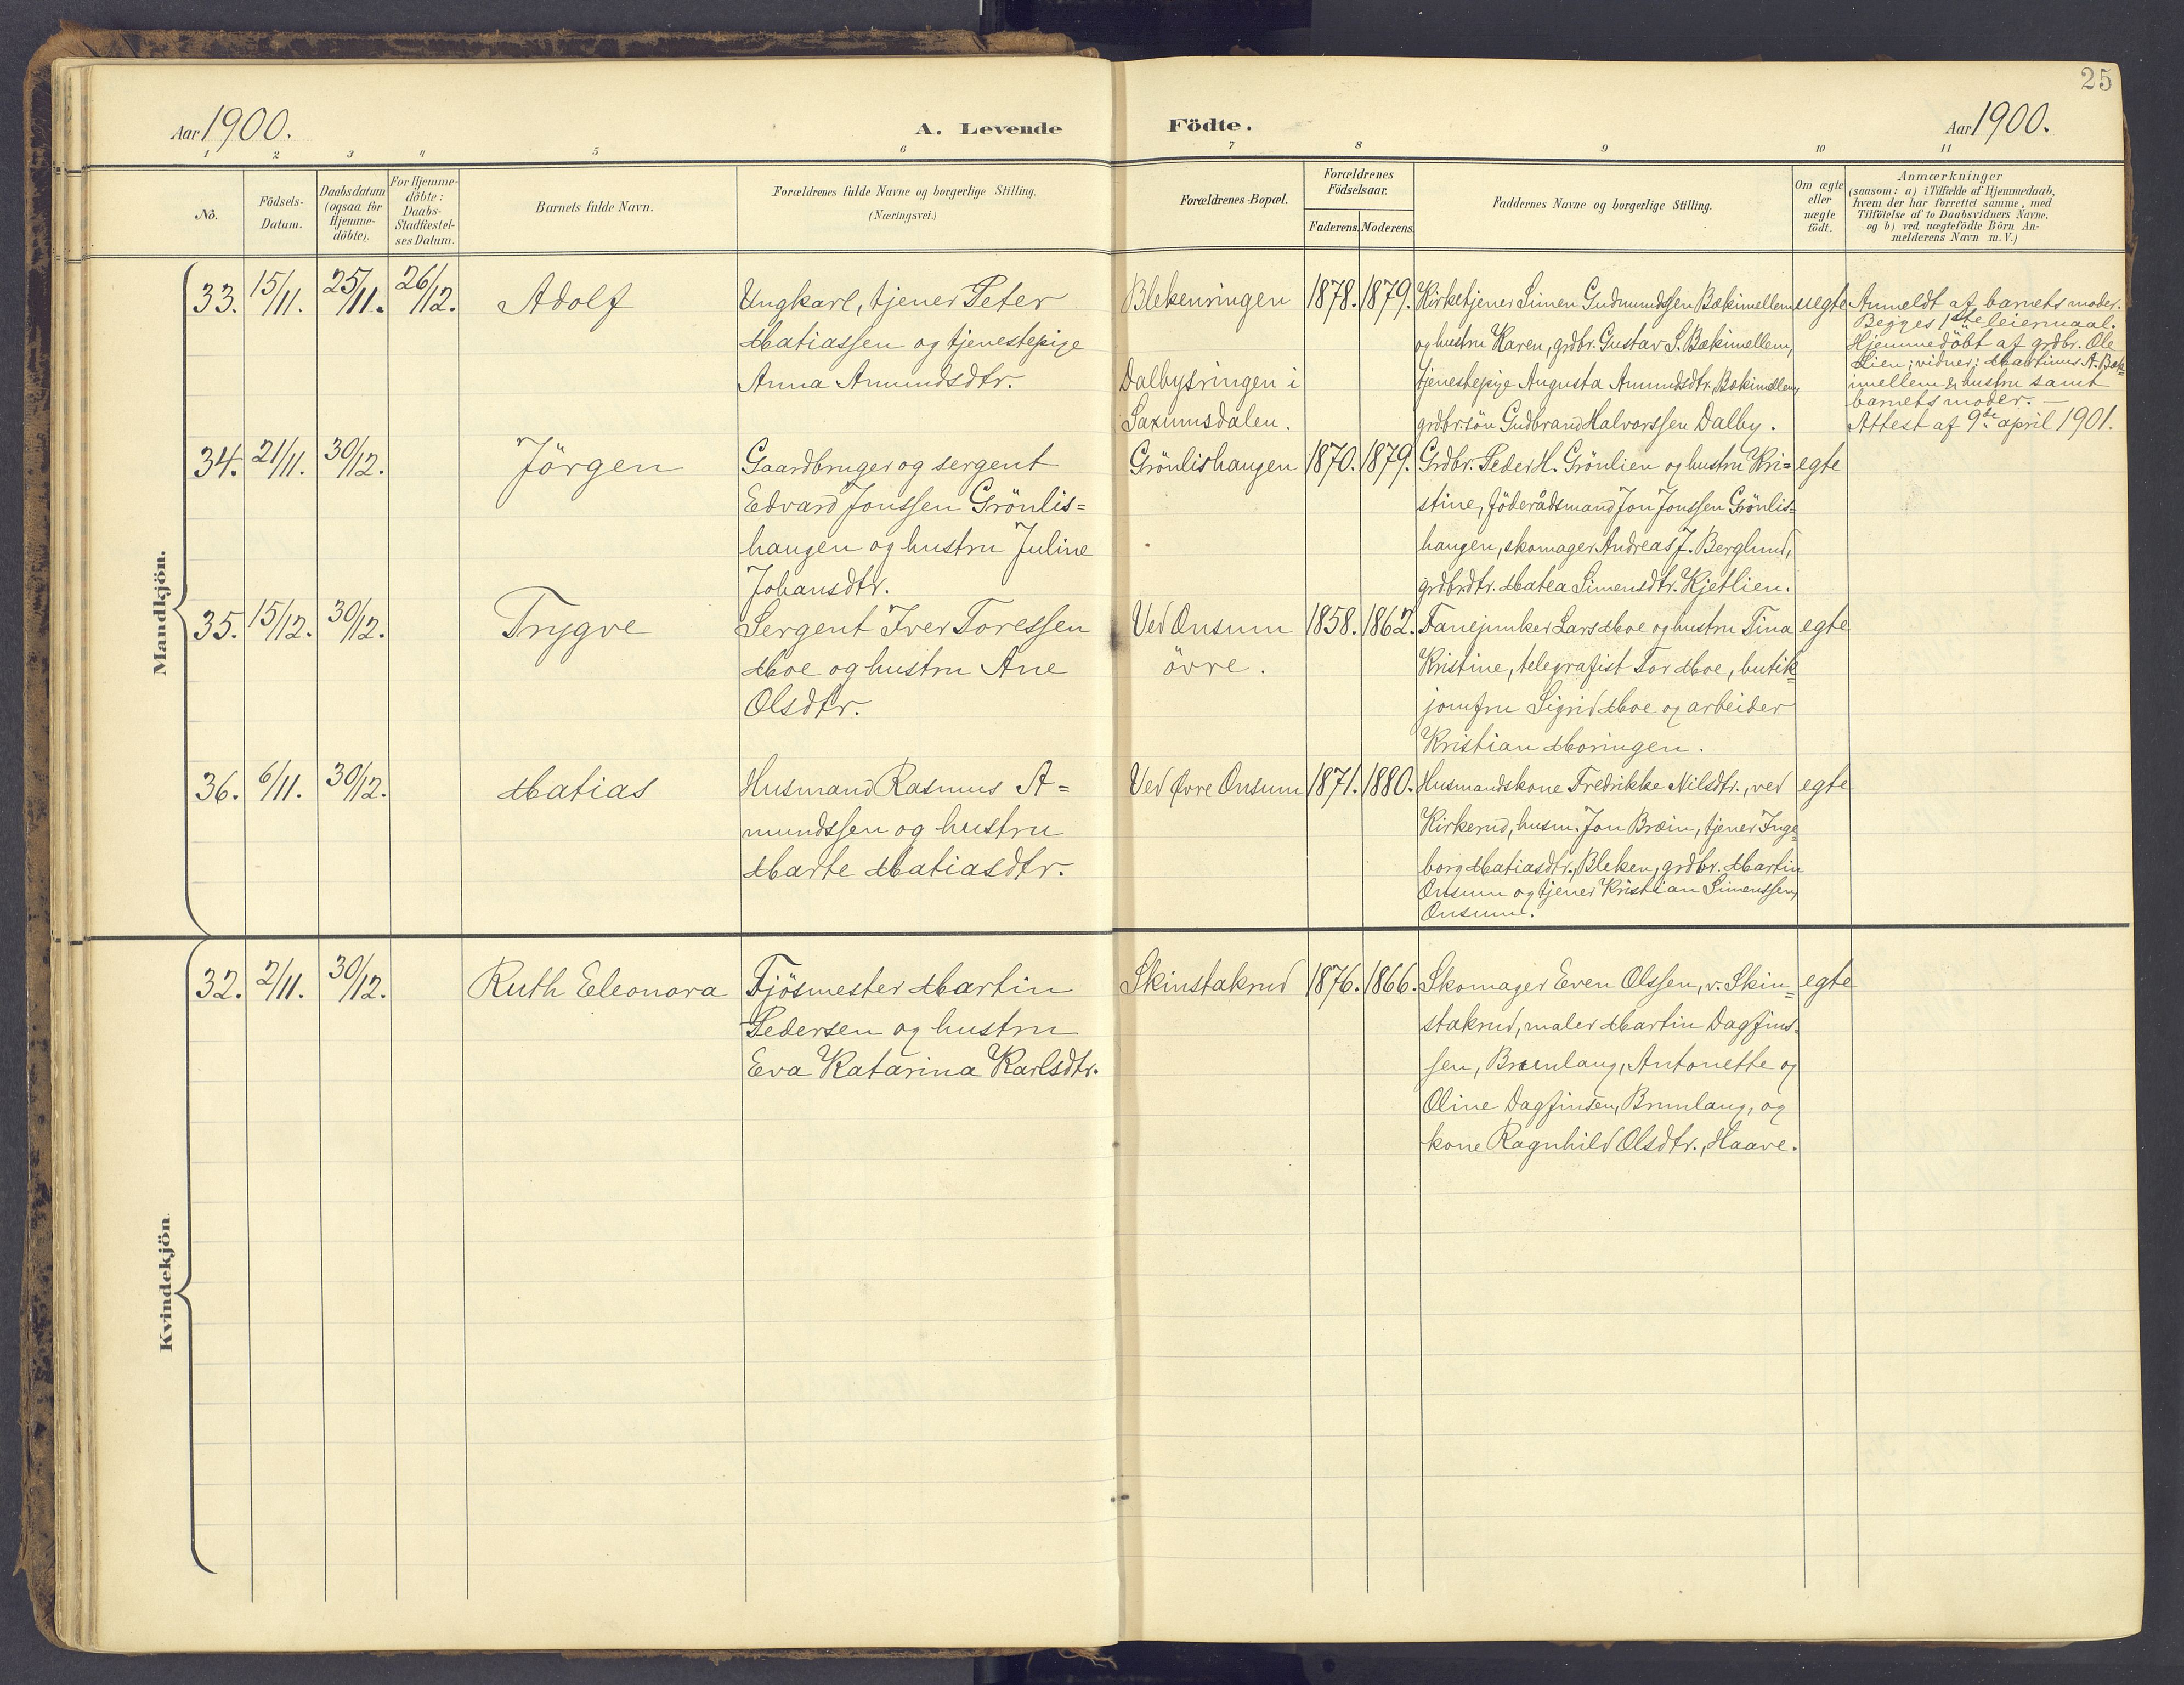 25
Aar 1900.
A. Levende
Födte.
Aar 1900.
1 2 3 4 5 6 7 8 9 10 11
No.
Födsels-
Datum.
Daabsdatum
(ogsaa for
Hjemme-
döbte).
For Hjemme-
döbte:
Daabs-
Stadfæstel-
ses Datum.
Barnets fulde Navn.
Forældrenes fulde Navne og borgerlige Stilling.
(Næringsvei.)
Forældrenes Bopæl.
Forældrenes
Födselsaar.
Faderens. Moderens.
Faddernes Navne og borgerlige Stilling.
Om ægte
eller
uægte
födt.
Anmærkninger
(saasom: a) i Tilfælde af Hjemmedaab,
hvem der har forrettet samme, med
Tilföielse af to Daabsvidners Navne.
og b) ved uægtefödte Börn An-
melderens Navn m. V.)
Mandkjön.
33. 15/11. 25/11. 26/12. Adolf
Ungkarl, tjener Peter
Matiassen og tjenestepige
Anna Amundsdtr.
Blekenringen
Dalbysringen i
Saxumsdalen.
1878. 1879.
Kirketjener Simen Gudmundssen Bækimellem
og hustru Karen, grdbr. Gustav S. Bækimellem,
tjenestepige Augusta Amundsdtr. Bækimellem,
grdbr.sön Gudbrand Halvorssen Dalby.
uegte
Anmeldt af barnets moder.
Begges 1ste leiermaal.
Hjemmedöbt af grdbr. Ole
Lien; vidner: Martinus A. Bæk=
imellem & hustru samt
barnets moder. —
Attest af 9de april 1901.
34. 21/11. 30/12. Jörgen
Gaardbruger og sergent
Edvard Jonssen Grönlis=
haugen og hustru Juline
Johansdtr.
Grönlishaugen
1870. 1879.
Grdbr. Peder H. Grönlien og hustru Kri=
stine, föderådsmand Jon Jonssen Grönlis=
haugen, skomager Andreas J. Berglund,
grdbrdtr. Matea Simensdtr. Kjetlien.
egte
35. 15/12. 30/12. Trygve
Sergent Iver Toressen
Moe og hustru Ane
Olsdtr.
Ved Onsum
övre.
1858. 1862.
Fanejunker Lars Moe og hustru Tina
Kristine, telegrafist Tor Moe, butik=
jomfru Sigrid Moe og arbeider
Kristian Moringen.
egte
36. 6/11. 30/12. Matias
Husmand Rasmus A=
mundssen og hustru
Marte Matiasdtr.
Ved Övre Onsum
1871. 1880.
Husmandskone Fredrikke Nilsdtr., ved
Kirkerud, husm. Jon Bræin, tjener Inge=
borg Matiasdtr., Bleken, grdbr. Martin
Onsum og tjener Kristian Simenssen,
Onsum.
egte
Kvindekjön.
32. 2/11. 30/12. Ruth Eleonora
Fjösmester Martin
Pedersen og hustru
Eva Katarina Karlsdtr.
Skinstakrud
1876. 1866.
Skomager Even Olssen, v. Skin=
stakrud, maler Martin Dagfins=
sen, Brunlaug, Antonette og
Oline Dagfinsen, Brunlaug, og
kone Ragnhild Olsdtr., Haave.
egte